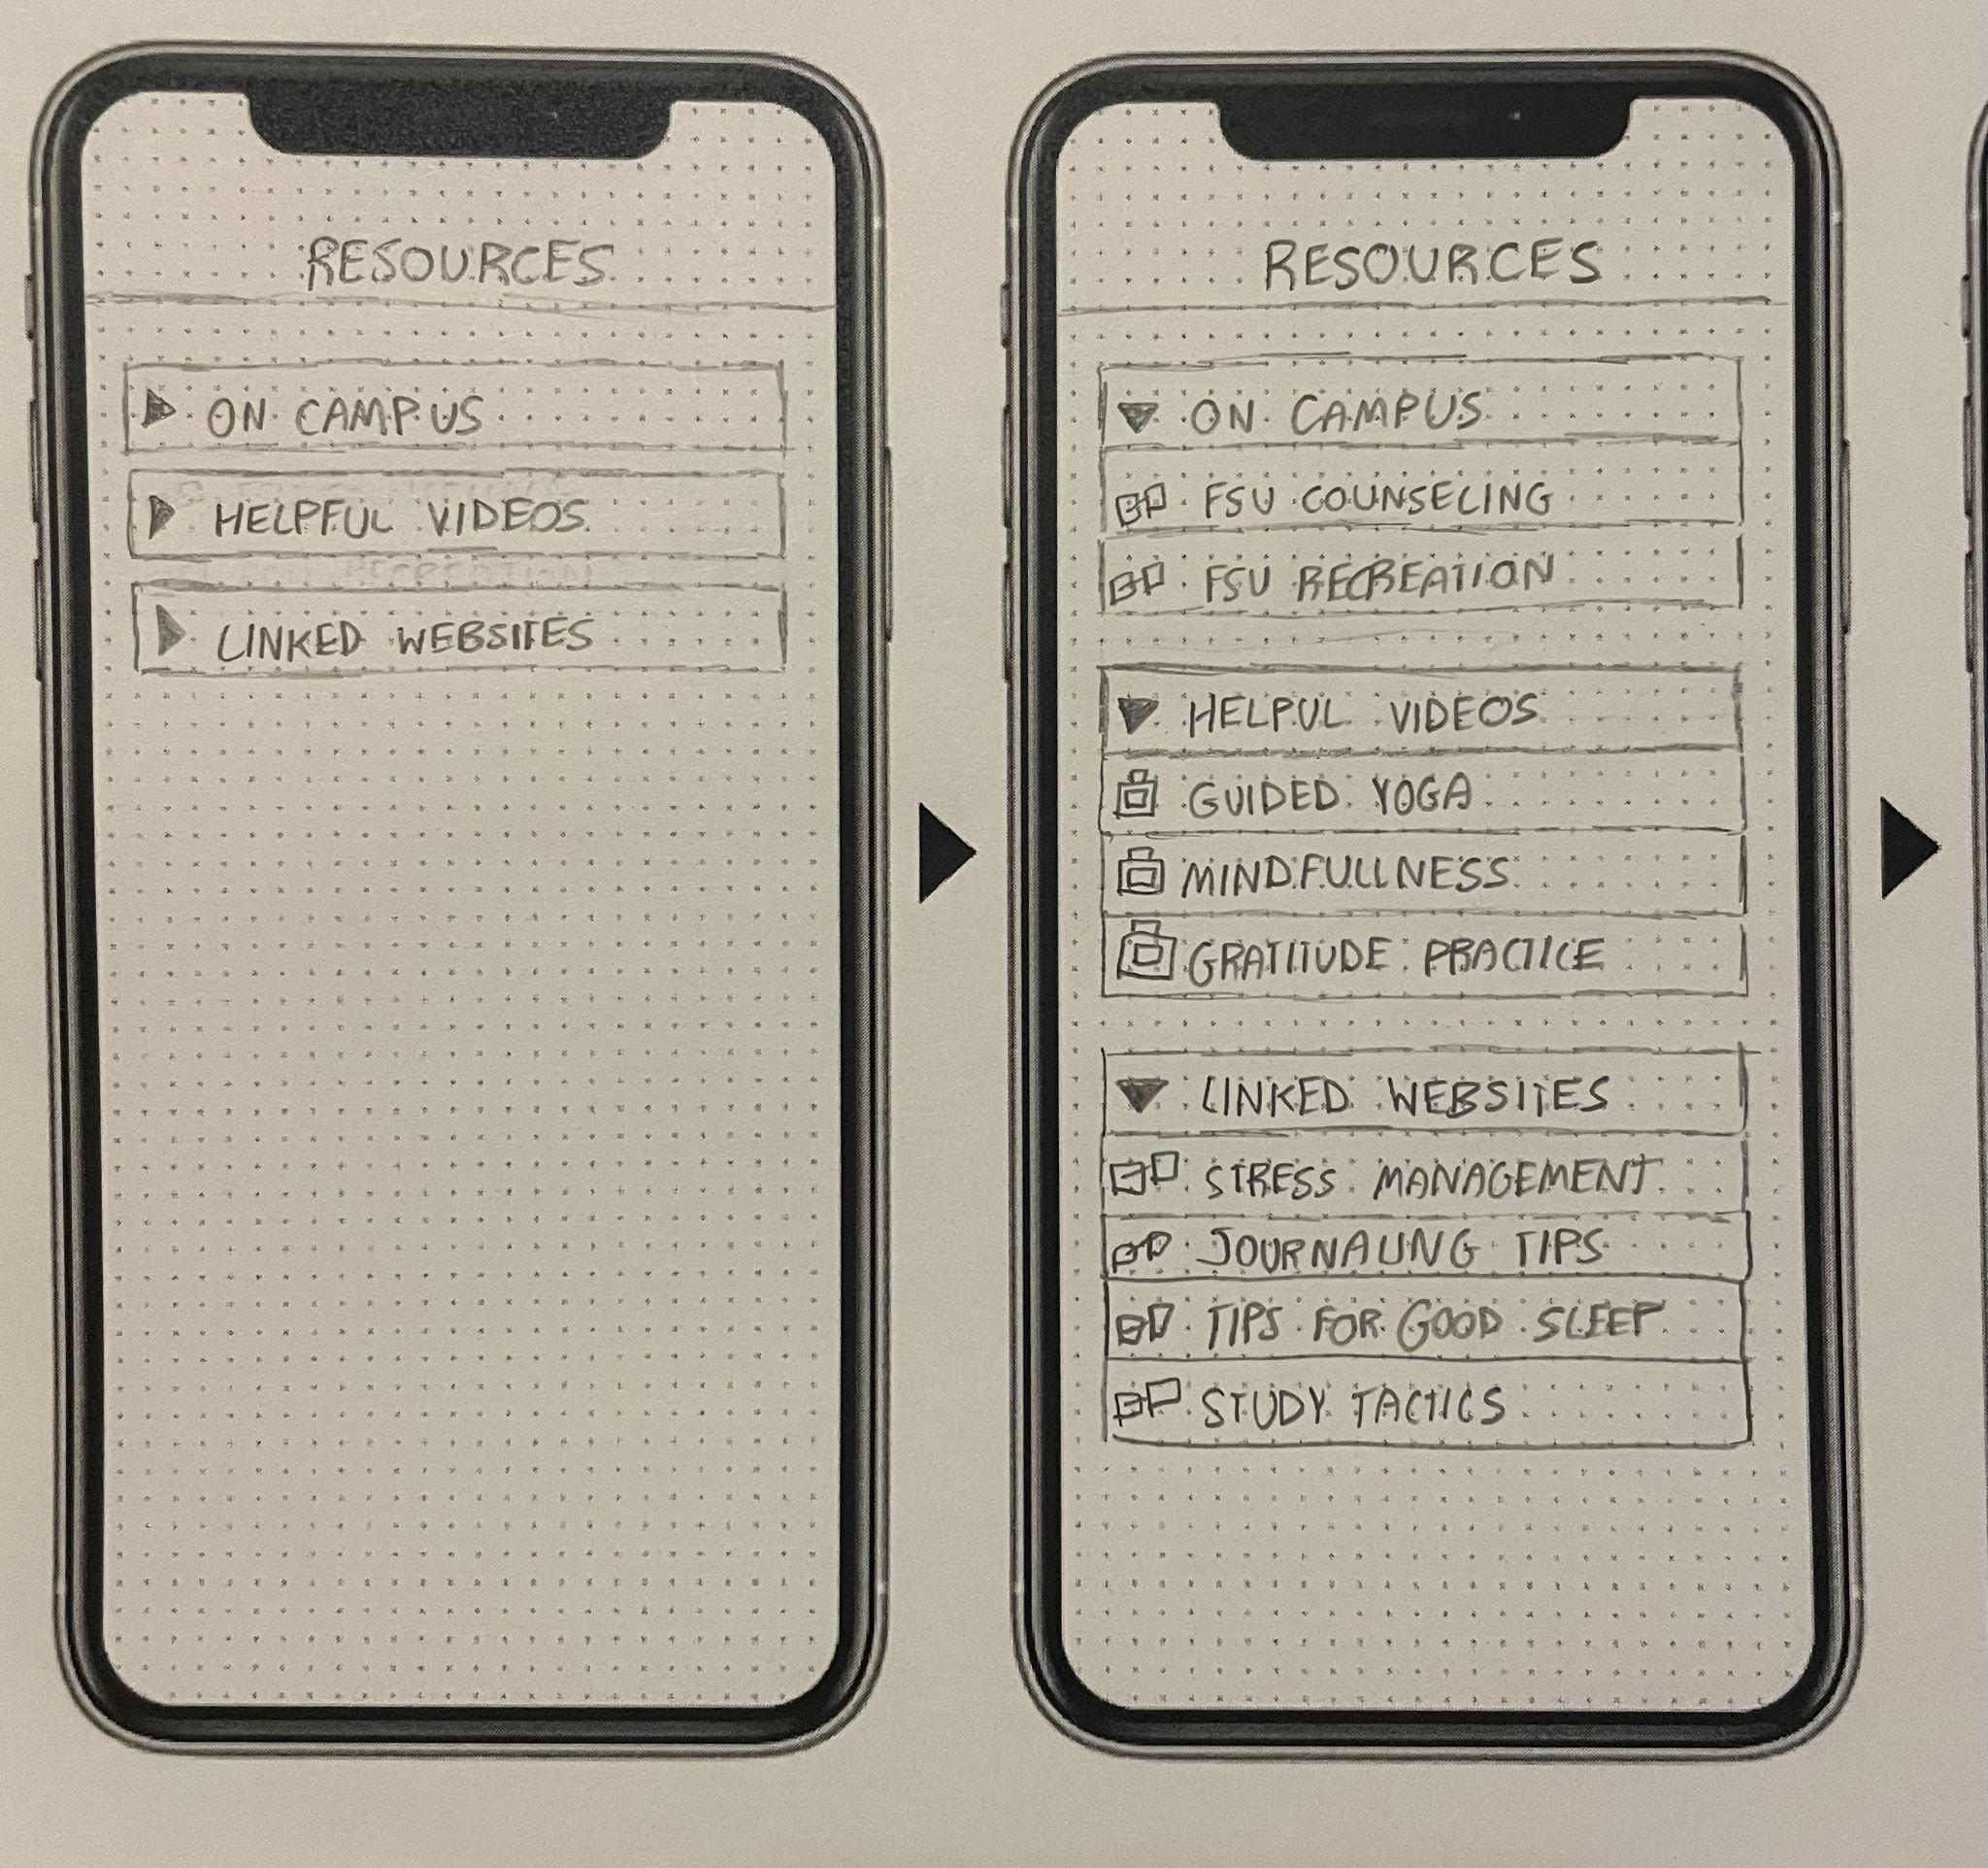 RESOURCES
ON CAMPUS
HELPFUL VIDEOS
LINKED WEBSITES
RESOURCES
ON CAMPUS
FSU COUNSELING
FSU RECREATION
HELPUL VIDEOS
GUIDED YOGA
MINDFULLNESS
GRATITUDE PRACTICE
LINKED WEBSITES
STRESS MANAGEMENT
JOURNALING TIPS
TIPS FOR GOOD SLEEP
STUDY TACTICS